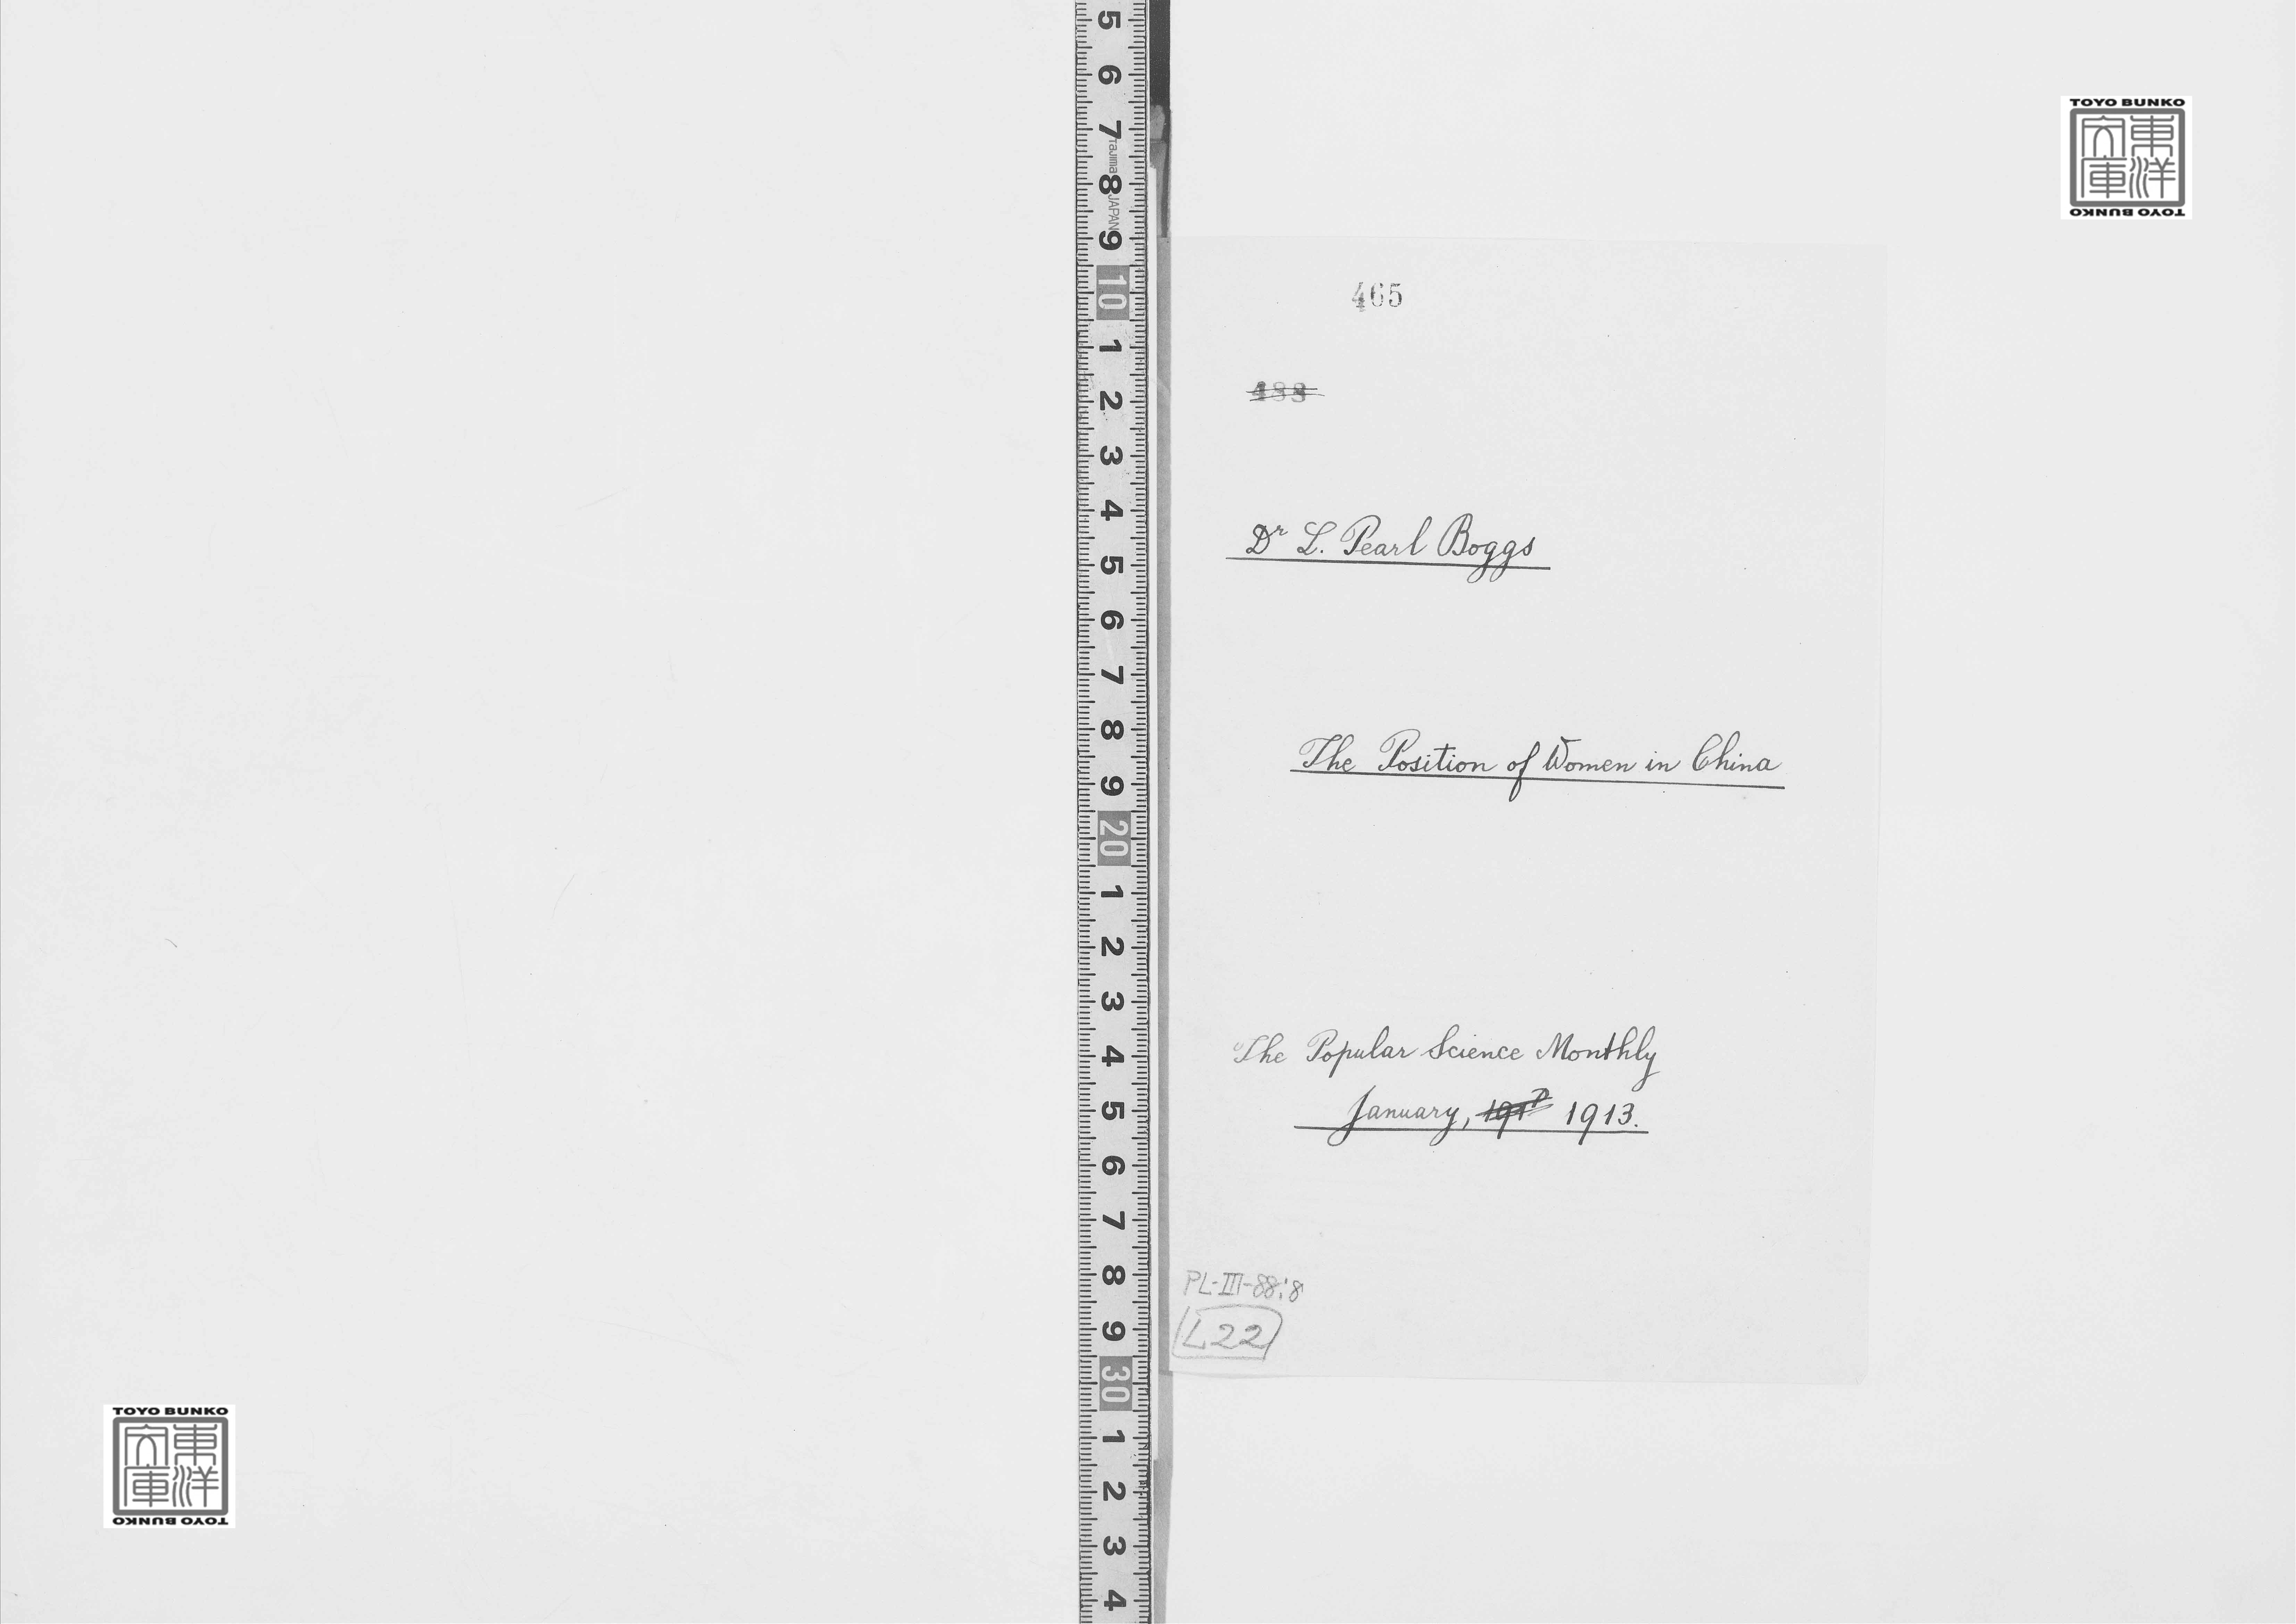 465
488
Dr L. Pearl Boggs
The Position of Women in China
The Popular Science Monthly
January, 1913.
PL-III-88:8
L22
TOYO BUNKO
東洋文庫
TOYO BUNKO
TOYO BUNKO
東洋文庫
TOYO BUNKO
5 6 7 8 9 10 1 2 3 4 5 6 7 8 9 20 1 2 3 4 5 6 7 8 9 30 1 2 3 4
Tajima JAPAN